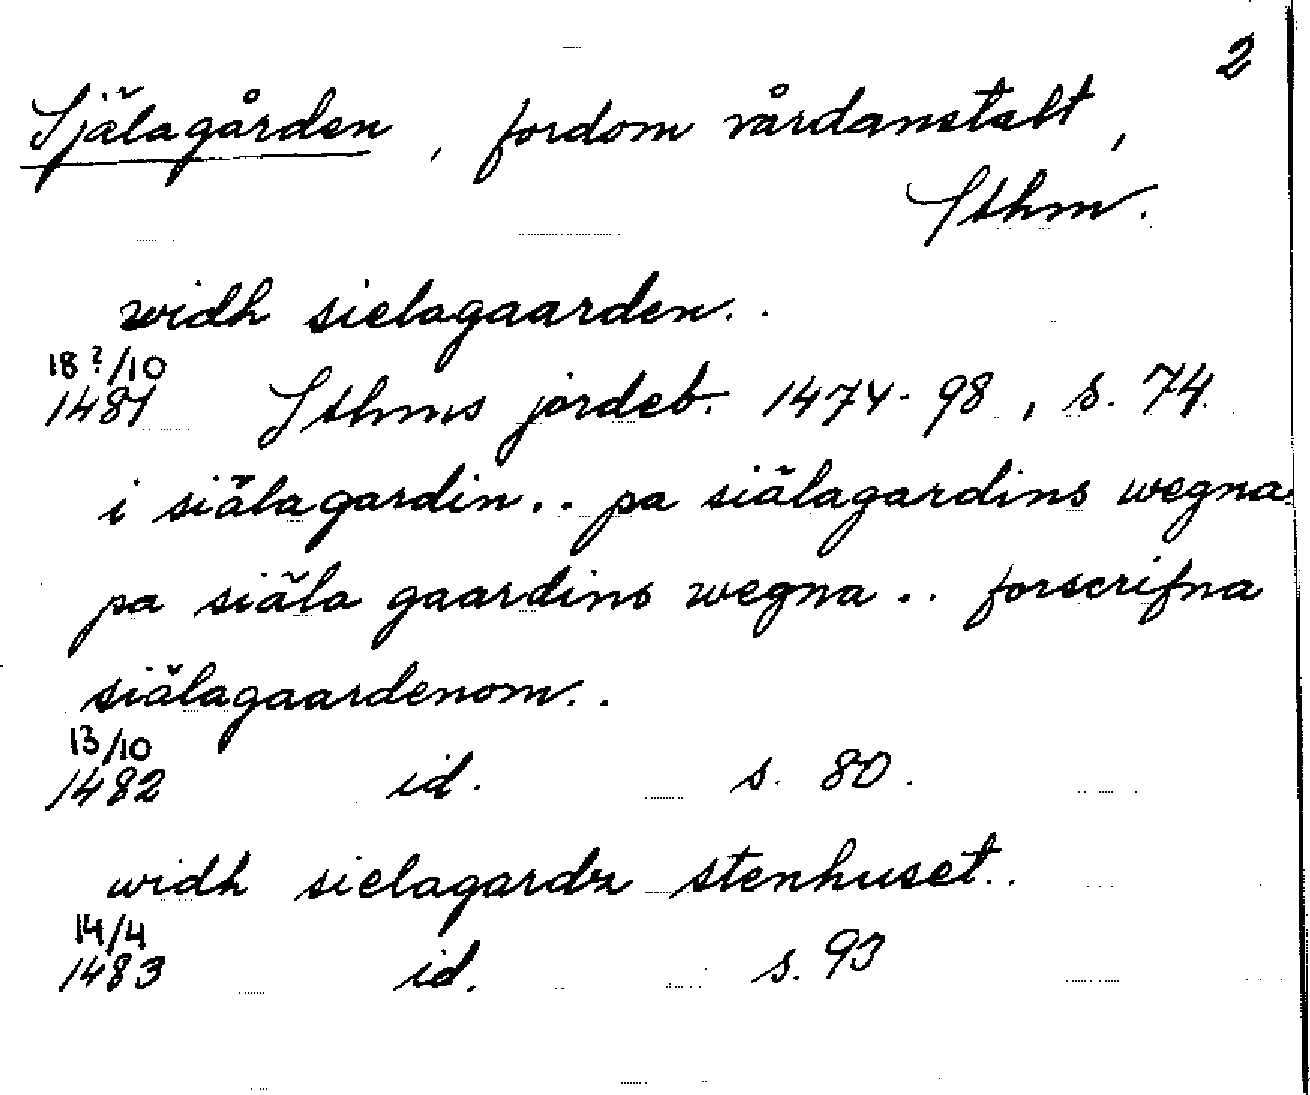 2
Själagården, fordom vårdanstalt,
Sthm.
widh sielagaarden..
18?/10
1481 Sthms jordeb. 1474-98, s. 74.
i siälagardin.. pa siälagardins wegna.
pa siäla gaardins wegna.. forscrifna
siälagaardenom..
13/10
1482 id. s. 80.
widh sielagardz stenhuset..
14/4
1483 id. s. 93